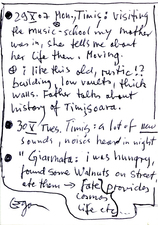 29 X 07 Mon, Timiș: visiting
the music-school my mother
was in, she tells me about
her life then. Moving.
i like this old, rustic!?
building, low vaults, thick
walls. Father talks about
history of Timișoara.
30 X Tues, Timiș: a lot of new
sounds, noises heard in night
"Giarmata: i was hungry,
found some Walnuts on street
ate them → Fate provides
cosmos
life etc...